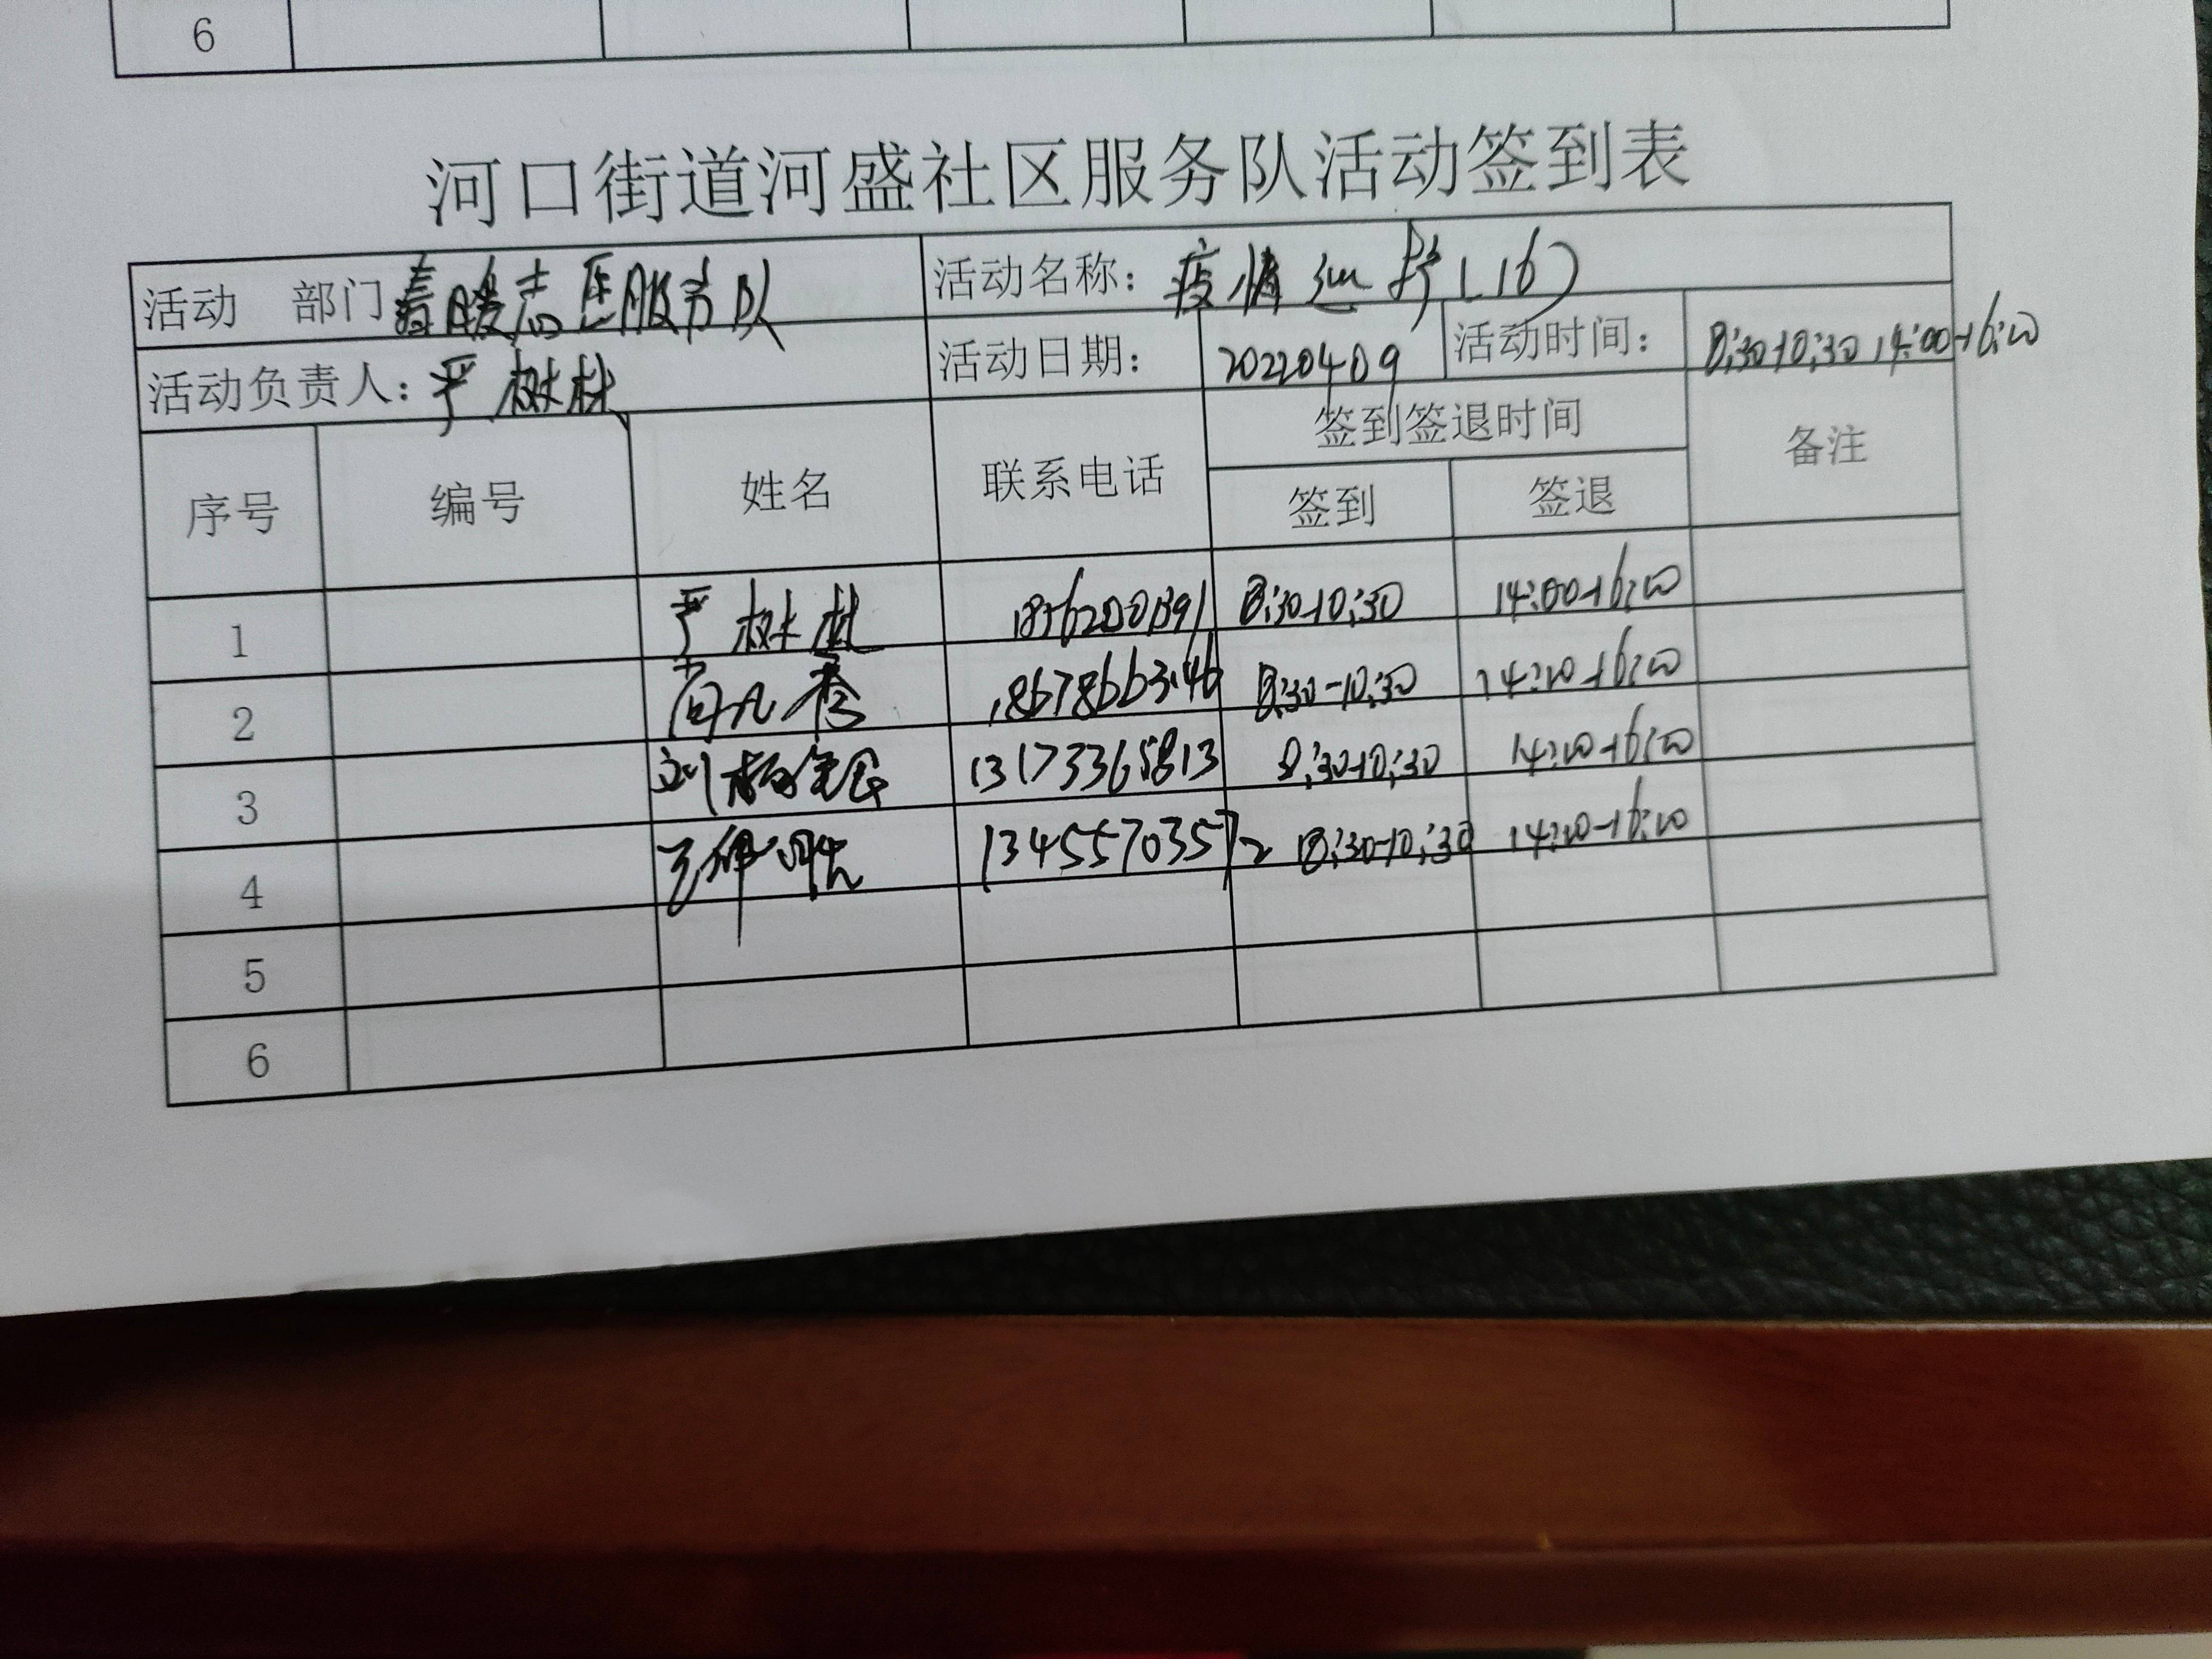 6
河口街道河盛社区服务队活动签到表
活动 部门 春暖志愿服务队 活动名称: 疫情巡(16)
活动负责人: 严树林 活动日期: 20220409 活动时间: 8:30-10:30 14:00-16:00
序号 编号 姓名 联系电话 签到签退时间 备注
签到 签退
1 严树林 8:30-10:30 14:00-16:00
2 8:30-10:30 14:00-16:00
3 刘 13173365813 8:30-10:30 14:00-16:00
4 13455703572 8:30-10:30 14:00-16:00
5
6